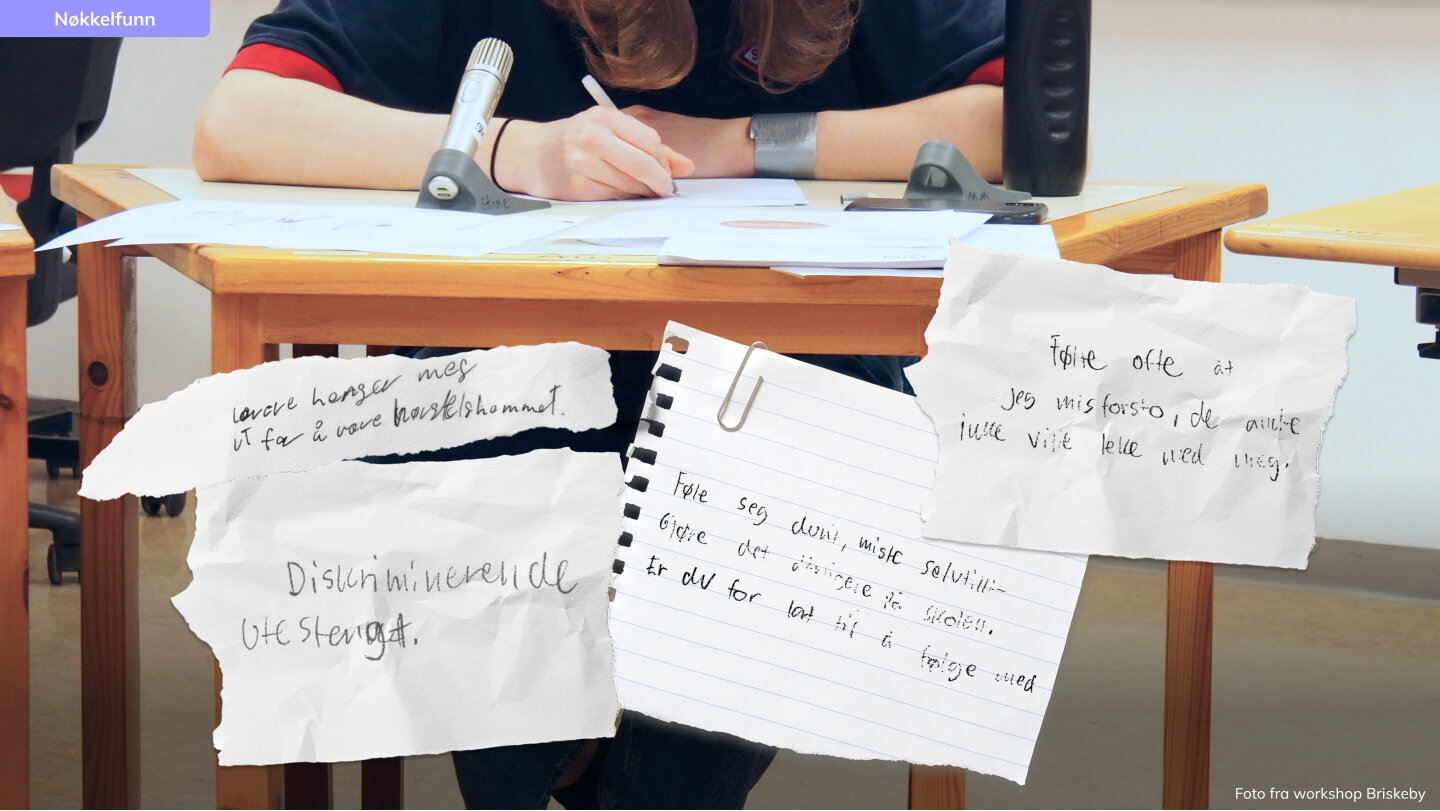 Nøkkelfunn
Stine
MM
lærere henger meg
ut for å være hørselshemmet.
Diskriminerende
utestengt.
Føle seg dum, miste selvtillit
Gjøre det dårligere på skolen.
Er du for lat til å følge med
Følte ofte at
jeg misforsto, de andre
ikke ville leke med meg.
Foto fra workshop Briskeby